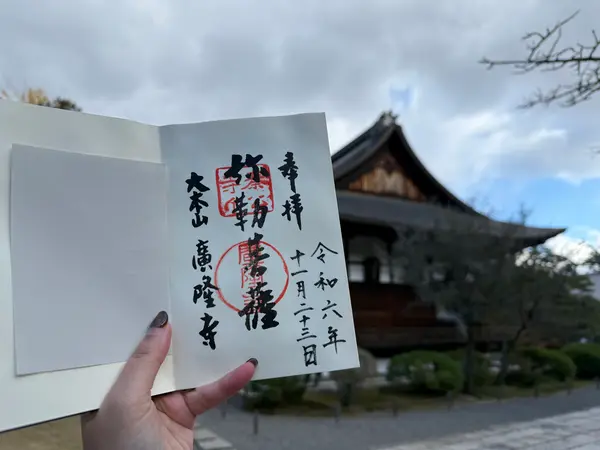 奉拝
令和六年
十一月二十三日
弥勒菩薩
大本山 廣隆寺